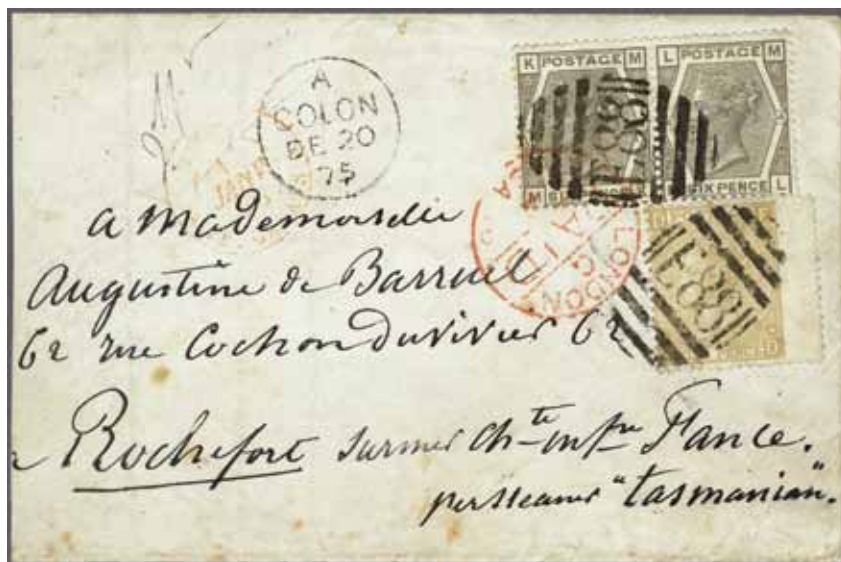 A
COLON
DE 20
75
K POSTAGE M
L POSTAGE M
E88
M SIX PENCE L
E88
LONDON
PAID
JAN
a Mademoiselle
Augustine de Barruel
62 rue Cochon duvivier 62
a Rochefort sur mer Chte Infre France.
per steamer "Tasmanian".